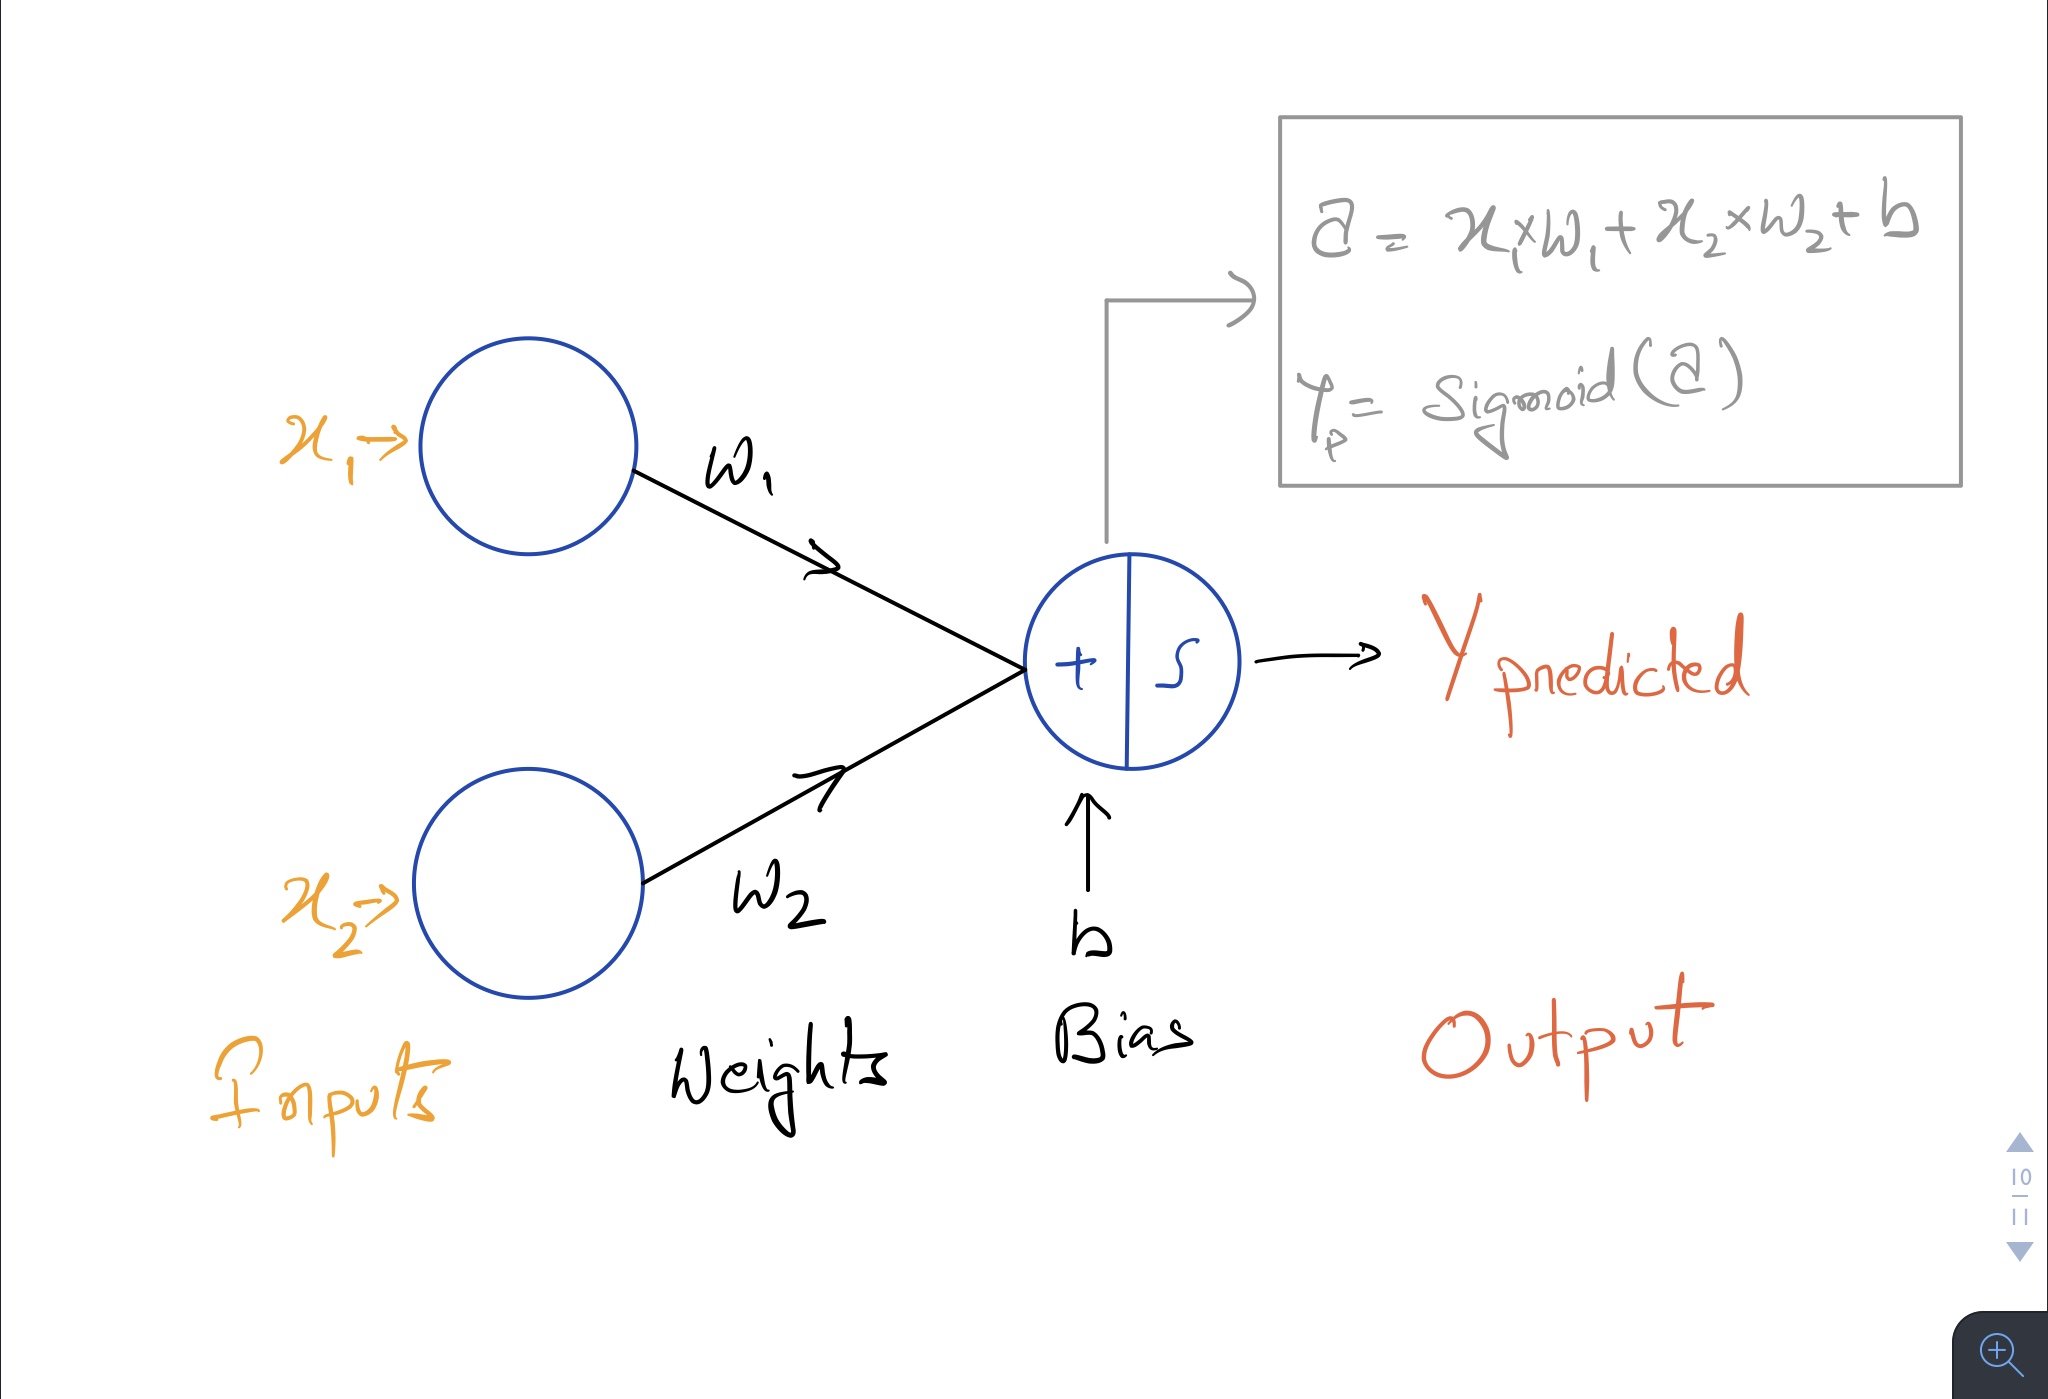 a = x₁×w₁+x₂×w₂+b
Yₚ= Sigmoid(a)
x₁→
w₁
+ S
Y predicted
x₂→
w₂
b
Bias
Inputs
Weights
Output
10
11